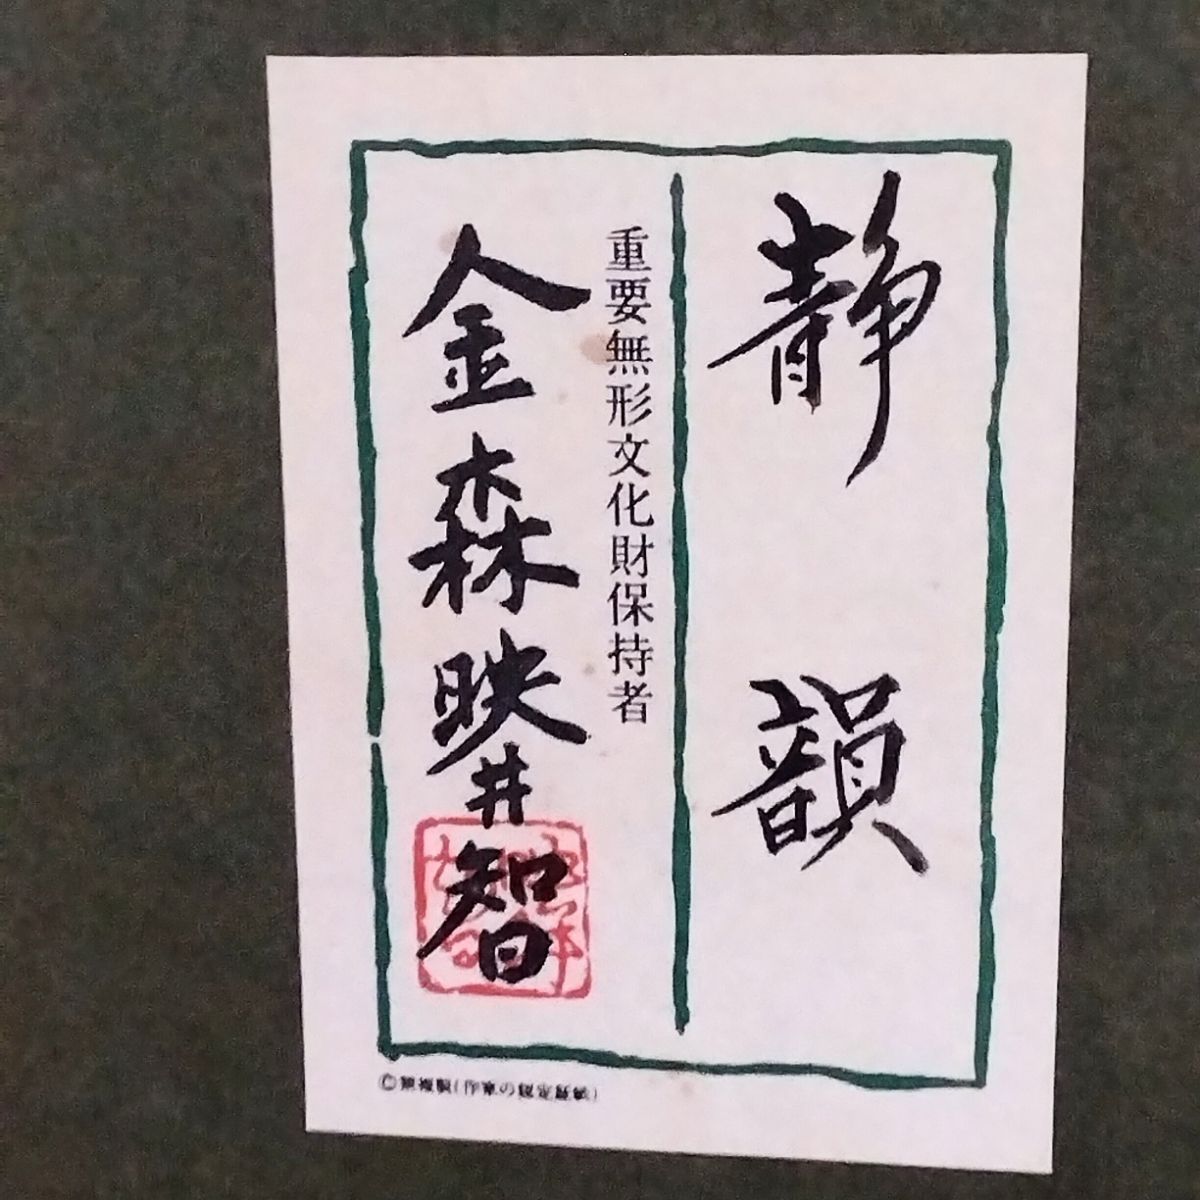 静韻
重要無形文化財保持者
金森映井智
©無複製(作家の認定証紙)